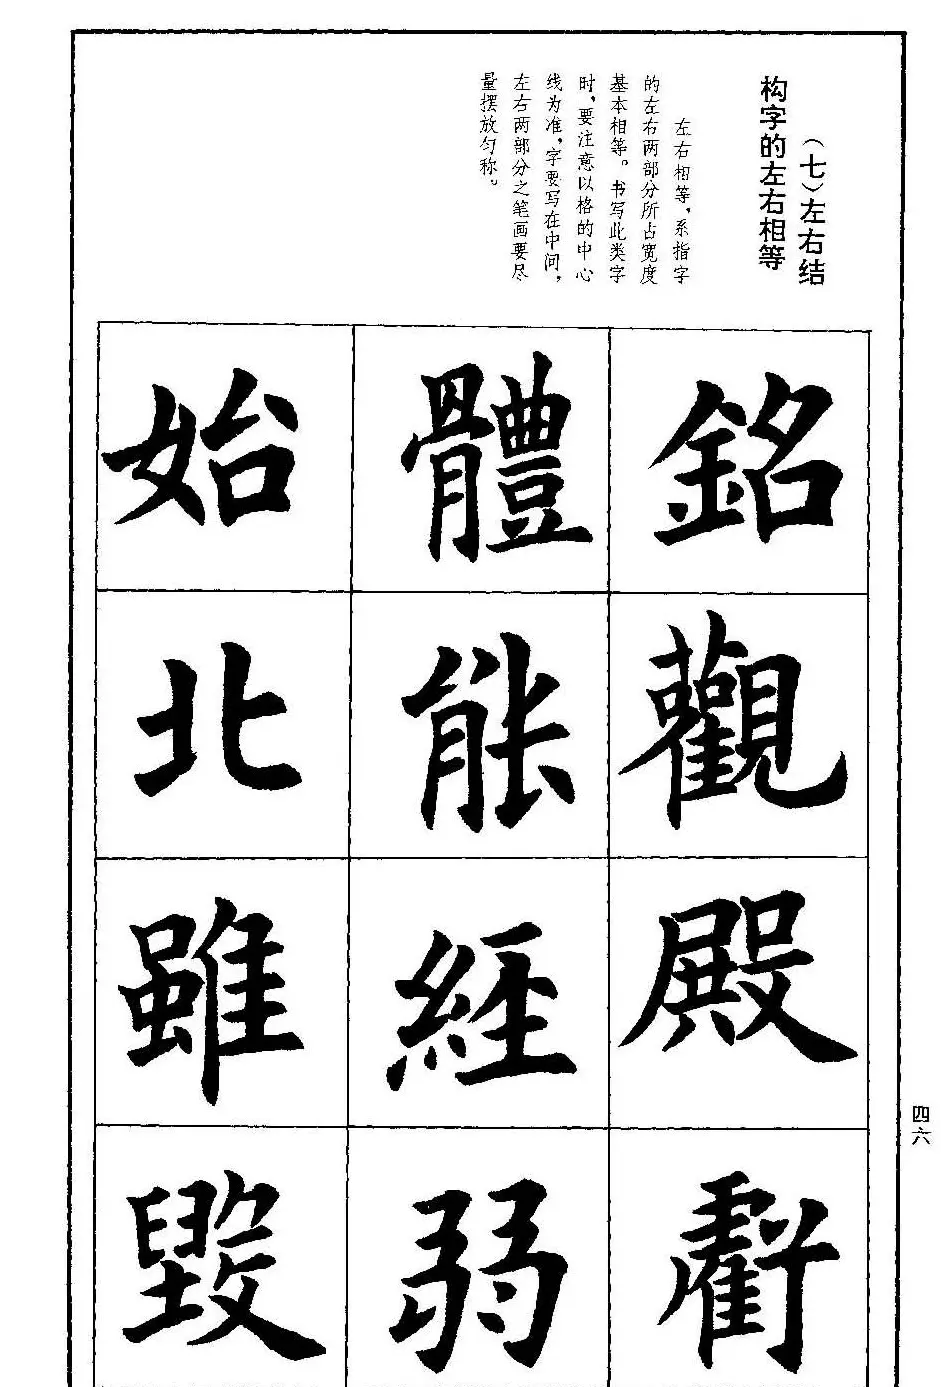 (七)左右结
构字的左右相等
左右相等,系指字
的左右两部分所占宽度
基本相等。书写此类字
时,要注意以格的中心
线为准,字要写在中间,
左右两部分之笔画要尽
量摆放匀称。
銘觀殿虧
體能經弱
始北雖毀
四六